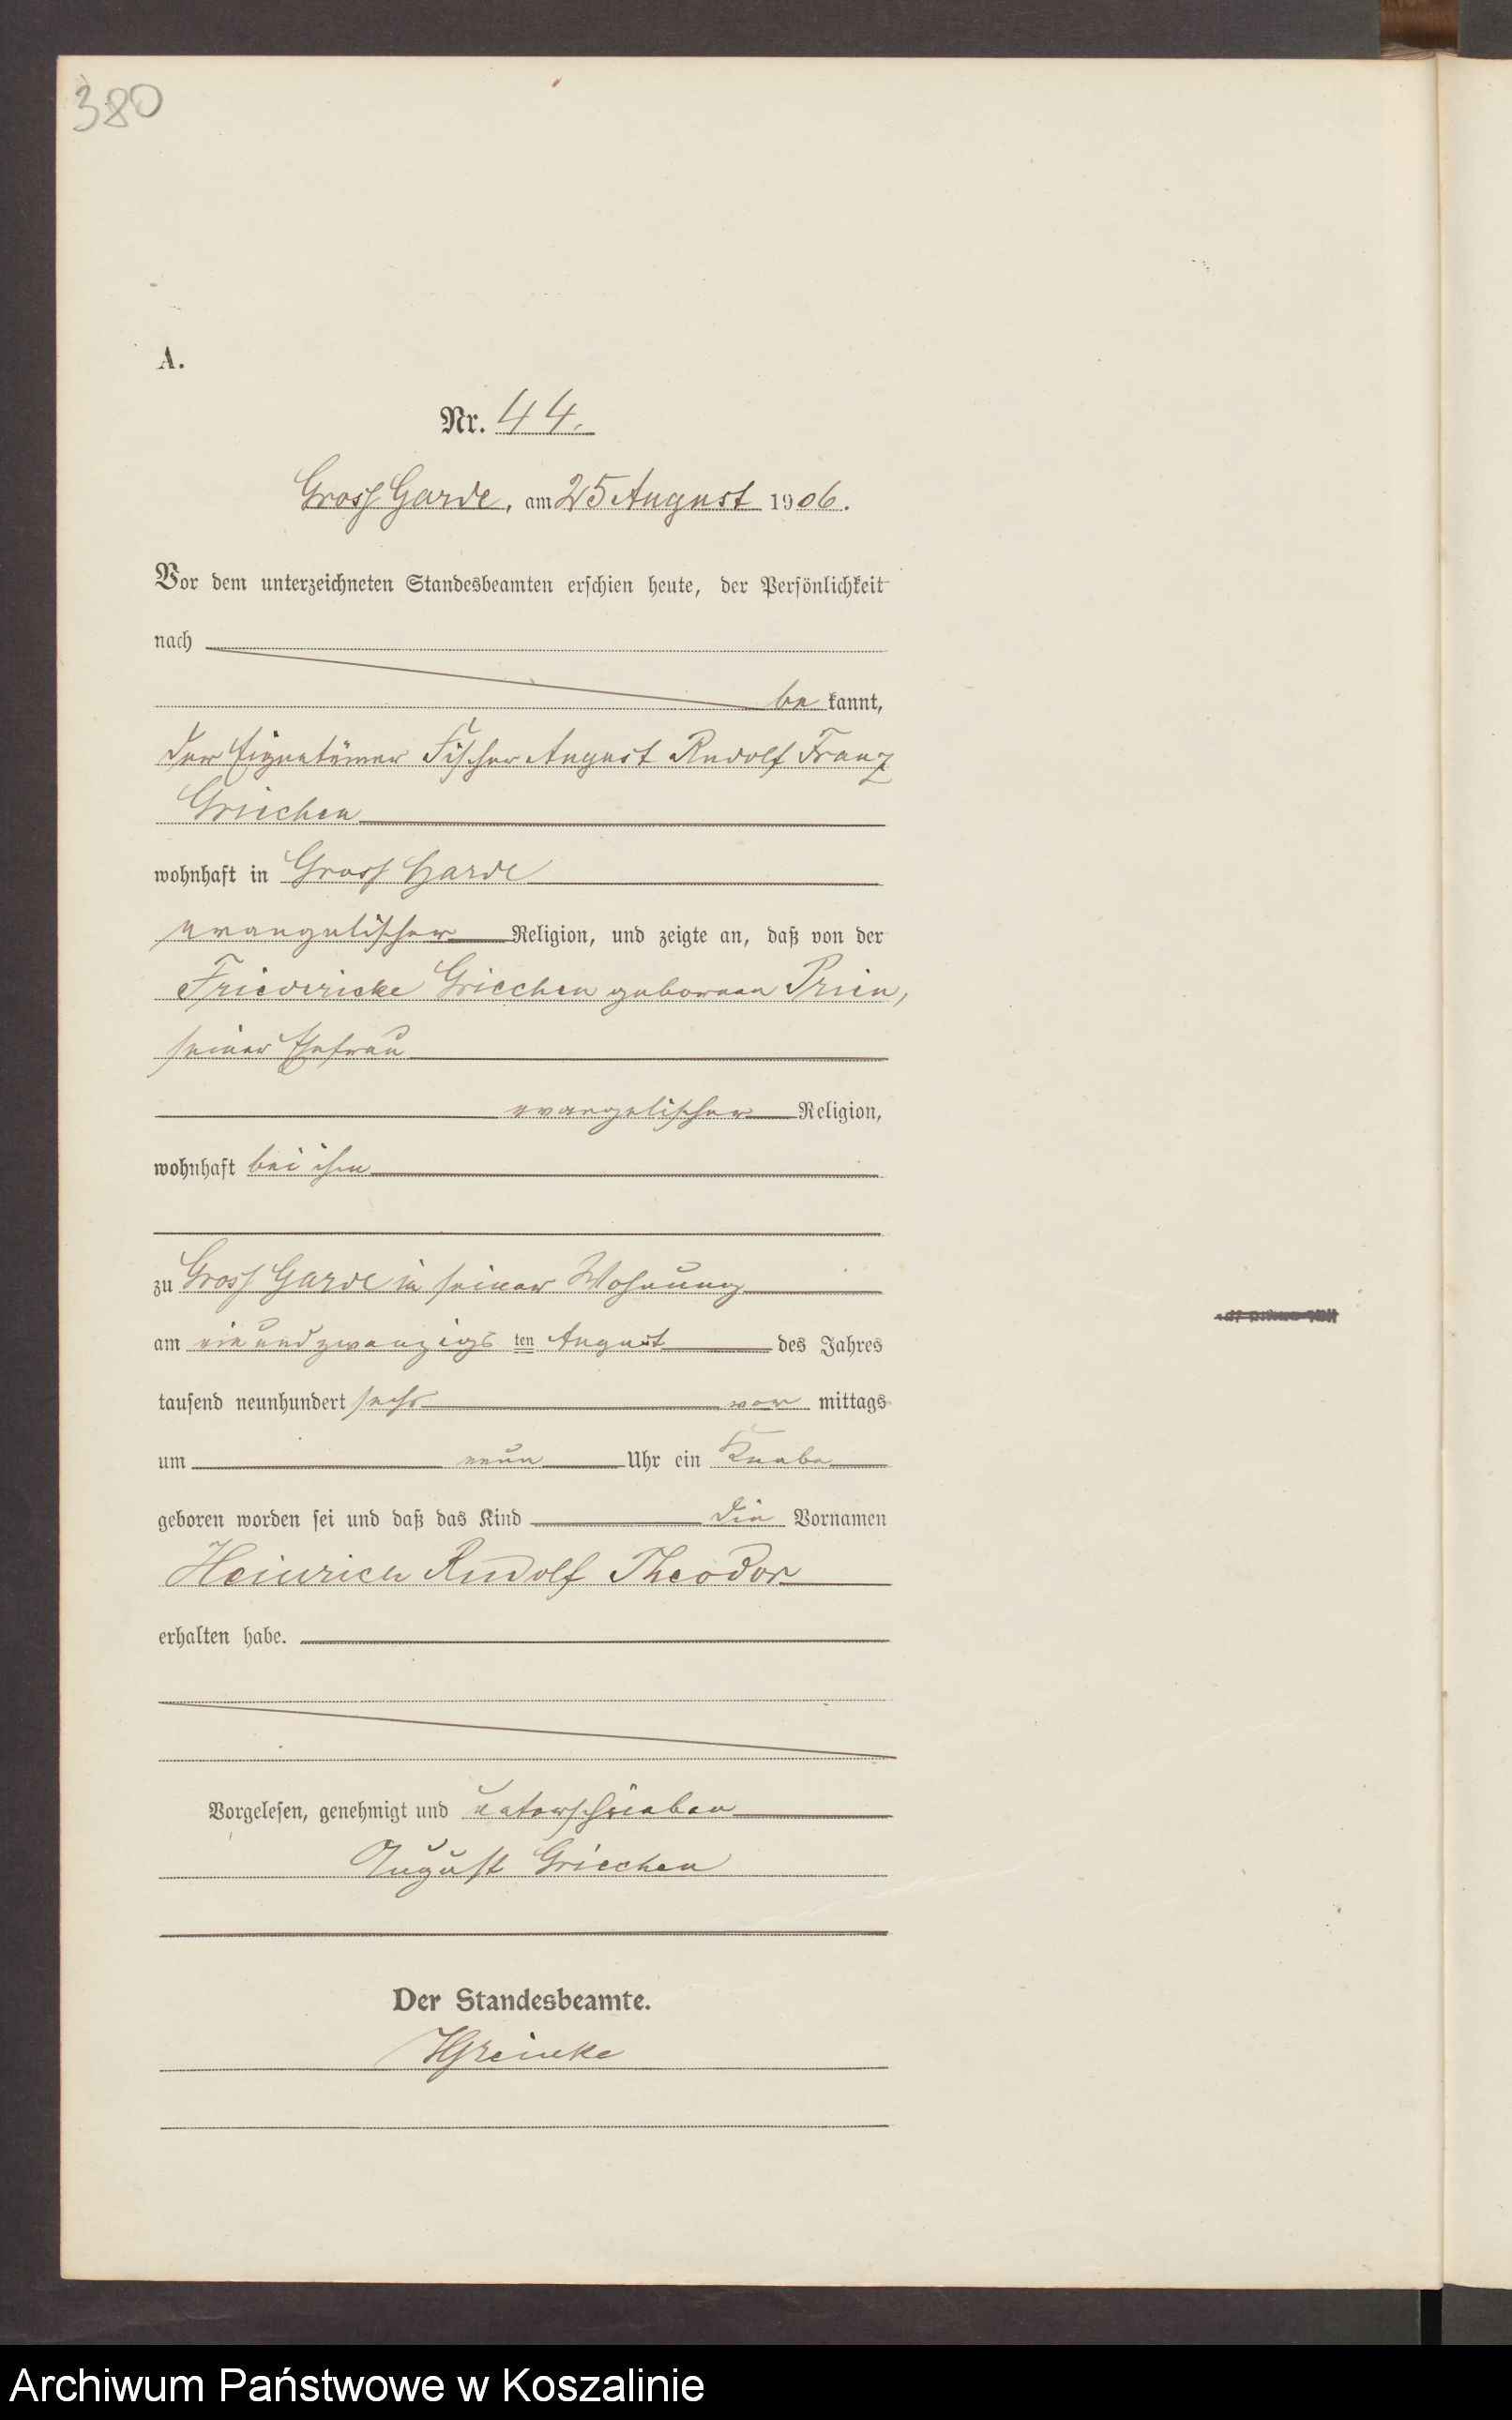 380
A.
Nr. 44.
Gross Garde, am 25 August 1906.
Vor dem unterzeichneten Standesbeamten erschien heute, der Persönlichkeit
nach
be kannt,
der Eigentümer Fischer August Rudolf Franz
Griechen
wohnhaft in Gross Garde
evangelischer Religion, und zeigte an, daß von der
Friedericke Griechen geborenen Prien,
seiner Ehefrau
evangelischer Religion,
wohnhaft bei ihm
zu Gross Garde in seiner Wohnung
am einundzwanzigs ten August des Jahres
tausend neunhundert sechs vor mittags
um neun Uhr ein Knabe
geboren worden sei und daß das Kind die Vornamen
Heinrich Rudolf Theodor
erhalten habe.
Vorgelesen, genehmigt und unterschrieben
August Griechen
Der Standesbeamte.
Archiwum Państwowe w Koszalinie